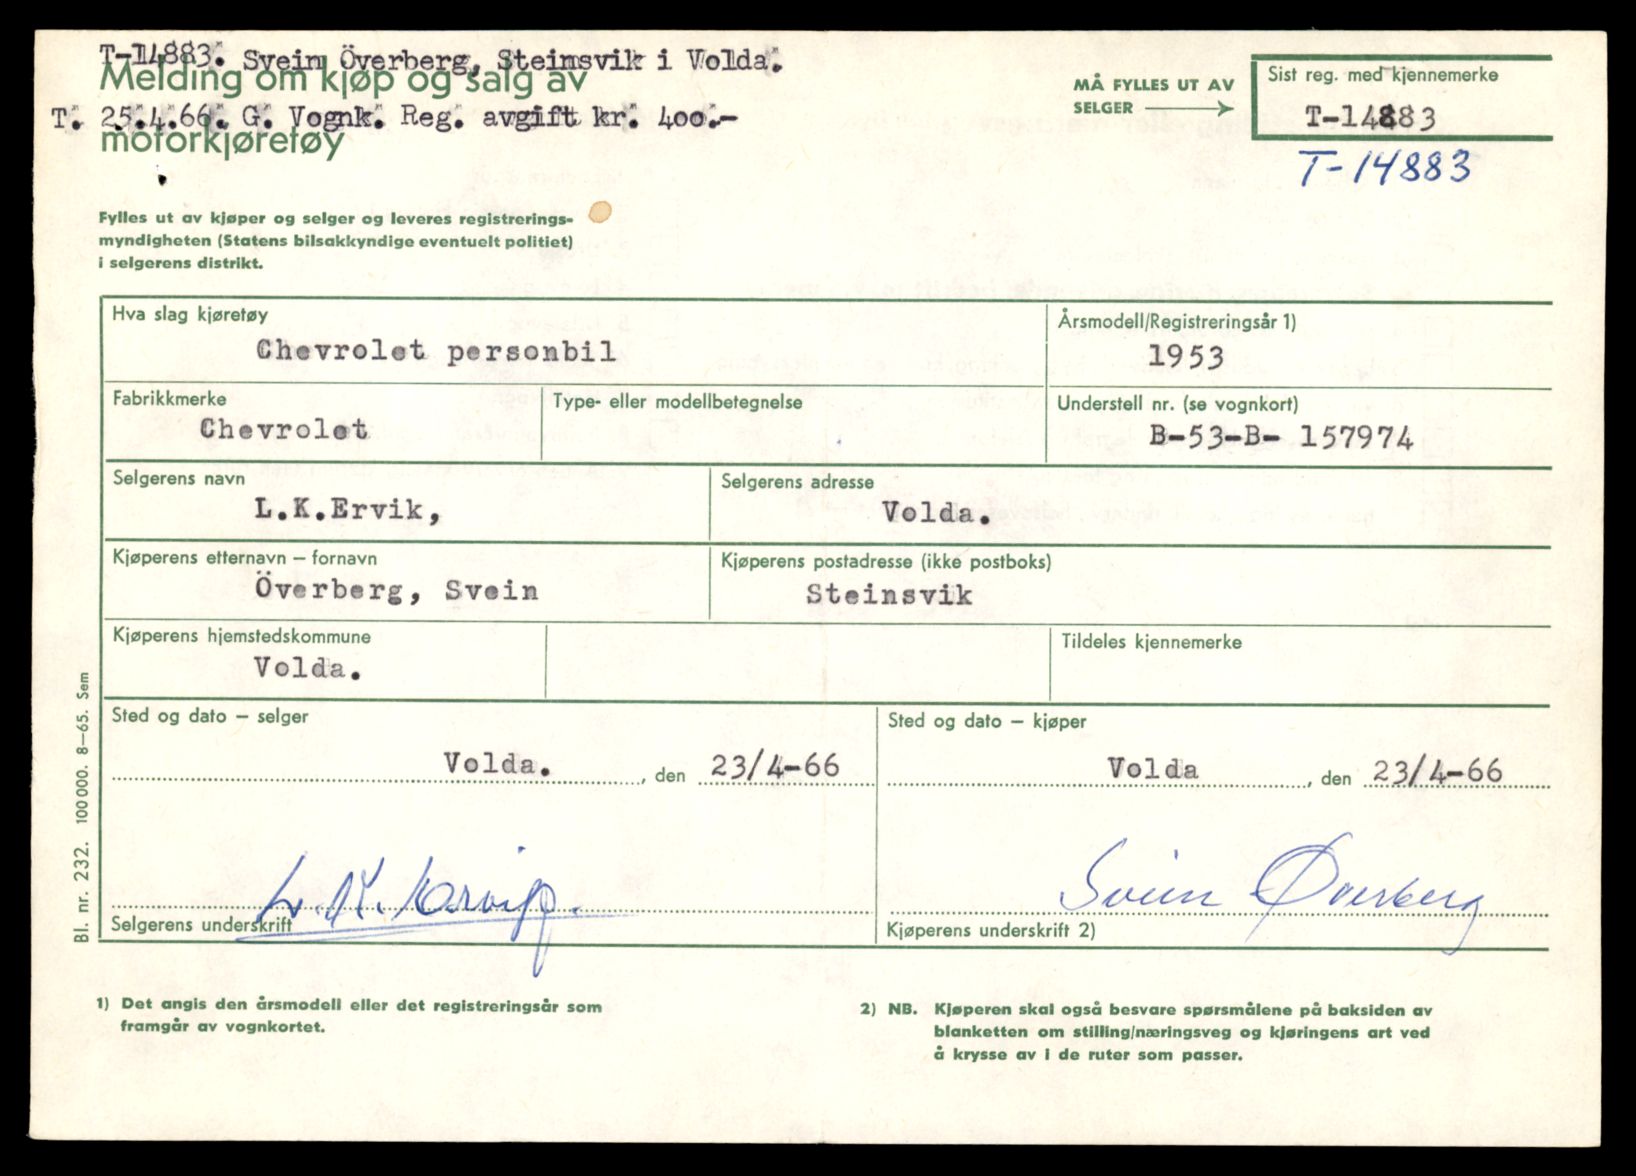 T-14883. Svein Överberg, Steinsvik i Volda.
Melding om kjøp og salg av
T. 25.4.66. G. Vognk. Reg. avgift kr. 400.-
motorkjøretøy
MÅ FYLLES UT AV
SELGER
Sist reg. med kjennemerke
T-14883
T-14883
Fylles ut av kjøper og selger og leveres registrerings-
myndigheten (Statens bilsakkyndige eventuelt politiet)
i selgerens distrikt.
Hva slag kjøretøy
Chevrolet personbil
Årsmodell/Registreringsår 1)
1953
Fabrikkmerke
Chevrolet
Type- eller modellbetegnelse
Understell nr. (se vognkort)
B-53-B- 157974
Selgerens navn
L.K.Ervik,
Selgerens adresse
Volda.
Kjøperens etternavn – fornavn
Överberg, Svein
Kjøperens postadresse (ikke postboks)
Steinsvik
Kjøperens hjemstedskommune
Volda.
Tildeles kjennemerke
Sted og dato – selger
Volda. , den 23/4-66
Sted og dato – kjøper
Volda , den 23/4-66
L. K. Ervik.
Selgerens underskrift
Svein Øverberg
Kjøperens underskrift 2)
Bl. nr. 232. 100000. 8–65. Sem
1) Det angis den årsmodell eller det registreringsår som
framgår av vognkortet.
2) NB. Kjøperen skal også besvare spørsmålene på baksiden av
blanketten om stilling/næringsveg og kjøringens art ved
å krysse av i de ruter som passer.